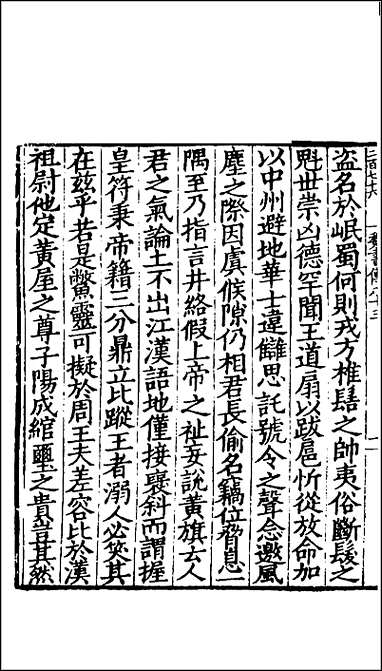 盗名於岷蜀何則戎方椎髻之帥夷俗斷髮之
魁世崇凶德罕聞王道扇以跋扈忻從放命加
以中州避地華士違讎思託號令之聲念邀風
塵之際因虞候隙仍相君長偷名竊位脅息一
隅至乃指言井絡假上帝之祉妄說黃旗云人
君之氣論土不出江漢語地僅接襃斜而謂握
皇符秉帝籍三分鼎立比蹤王者溺人必笑其
在茲乎若是鱉靈可擬於周王夫差容比於漢
祖尉他定黃屋之尊子陽成綰璽之貴豈其然